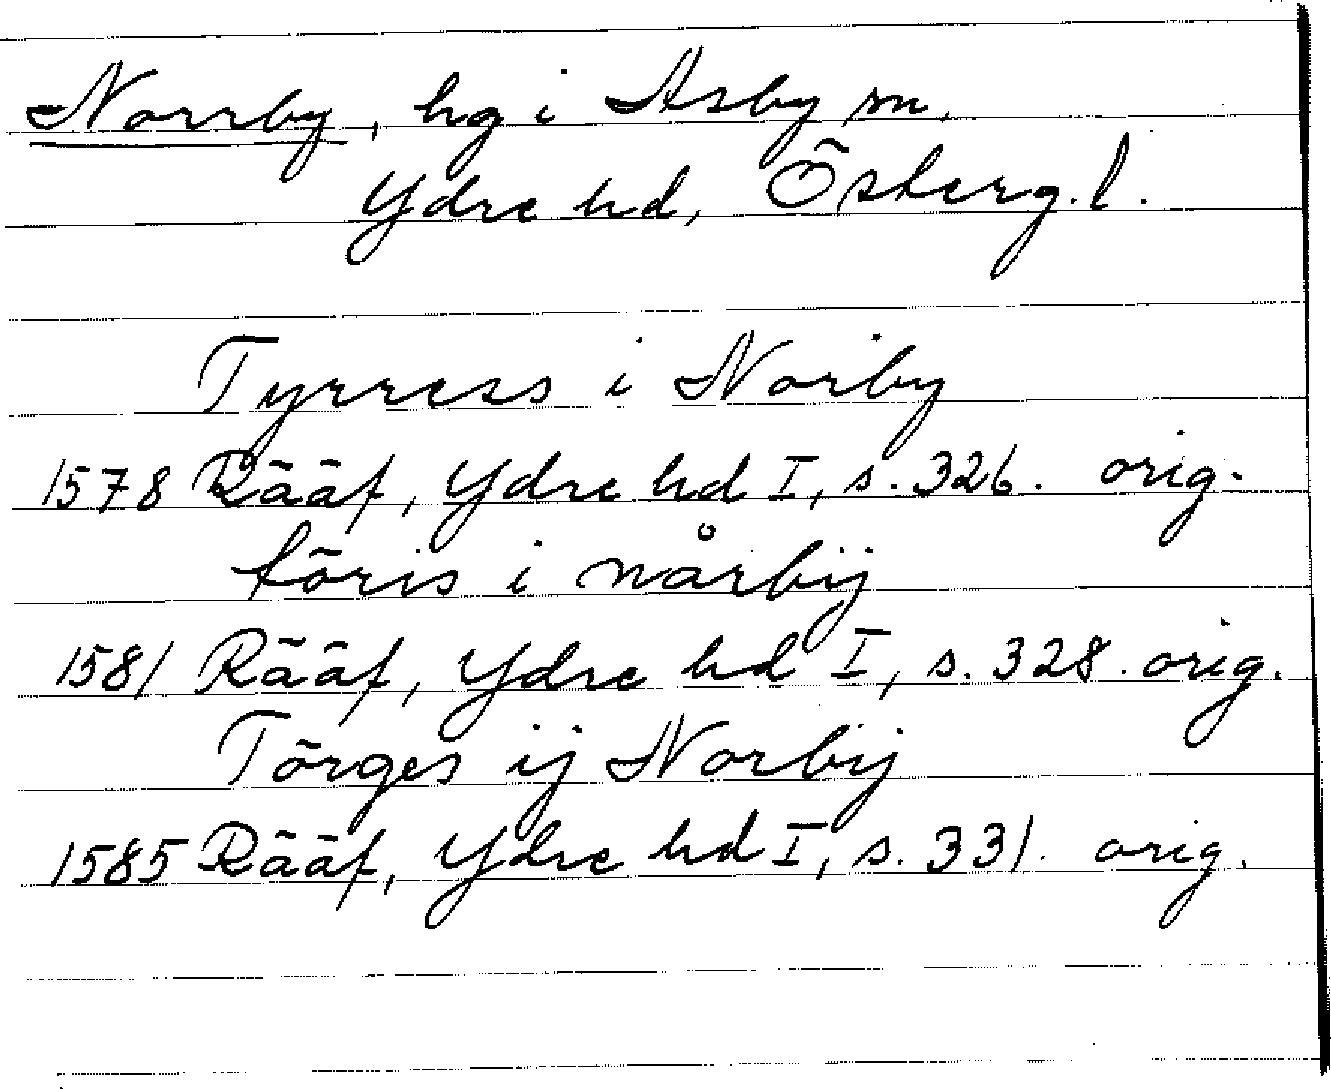 Norrby, hg i Asby sn,
Ydre hd, Österg. l.
Tyrress i Norby
1578 Rääf, Ydre hd I, s. 326. orig.
töris i nårbij
1581 Rääf, Ydre hd I, s. 328. orig.
Törges ij Norbij
1585 Rääf, Ydre hd I, s. 331. orig.